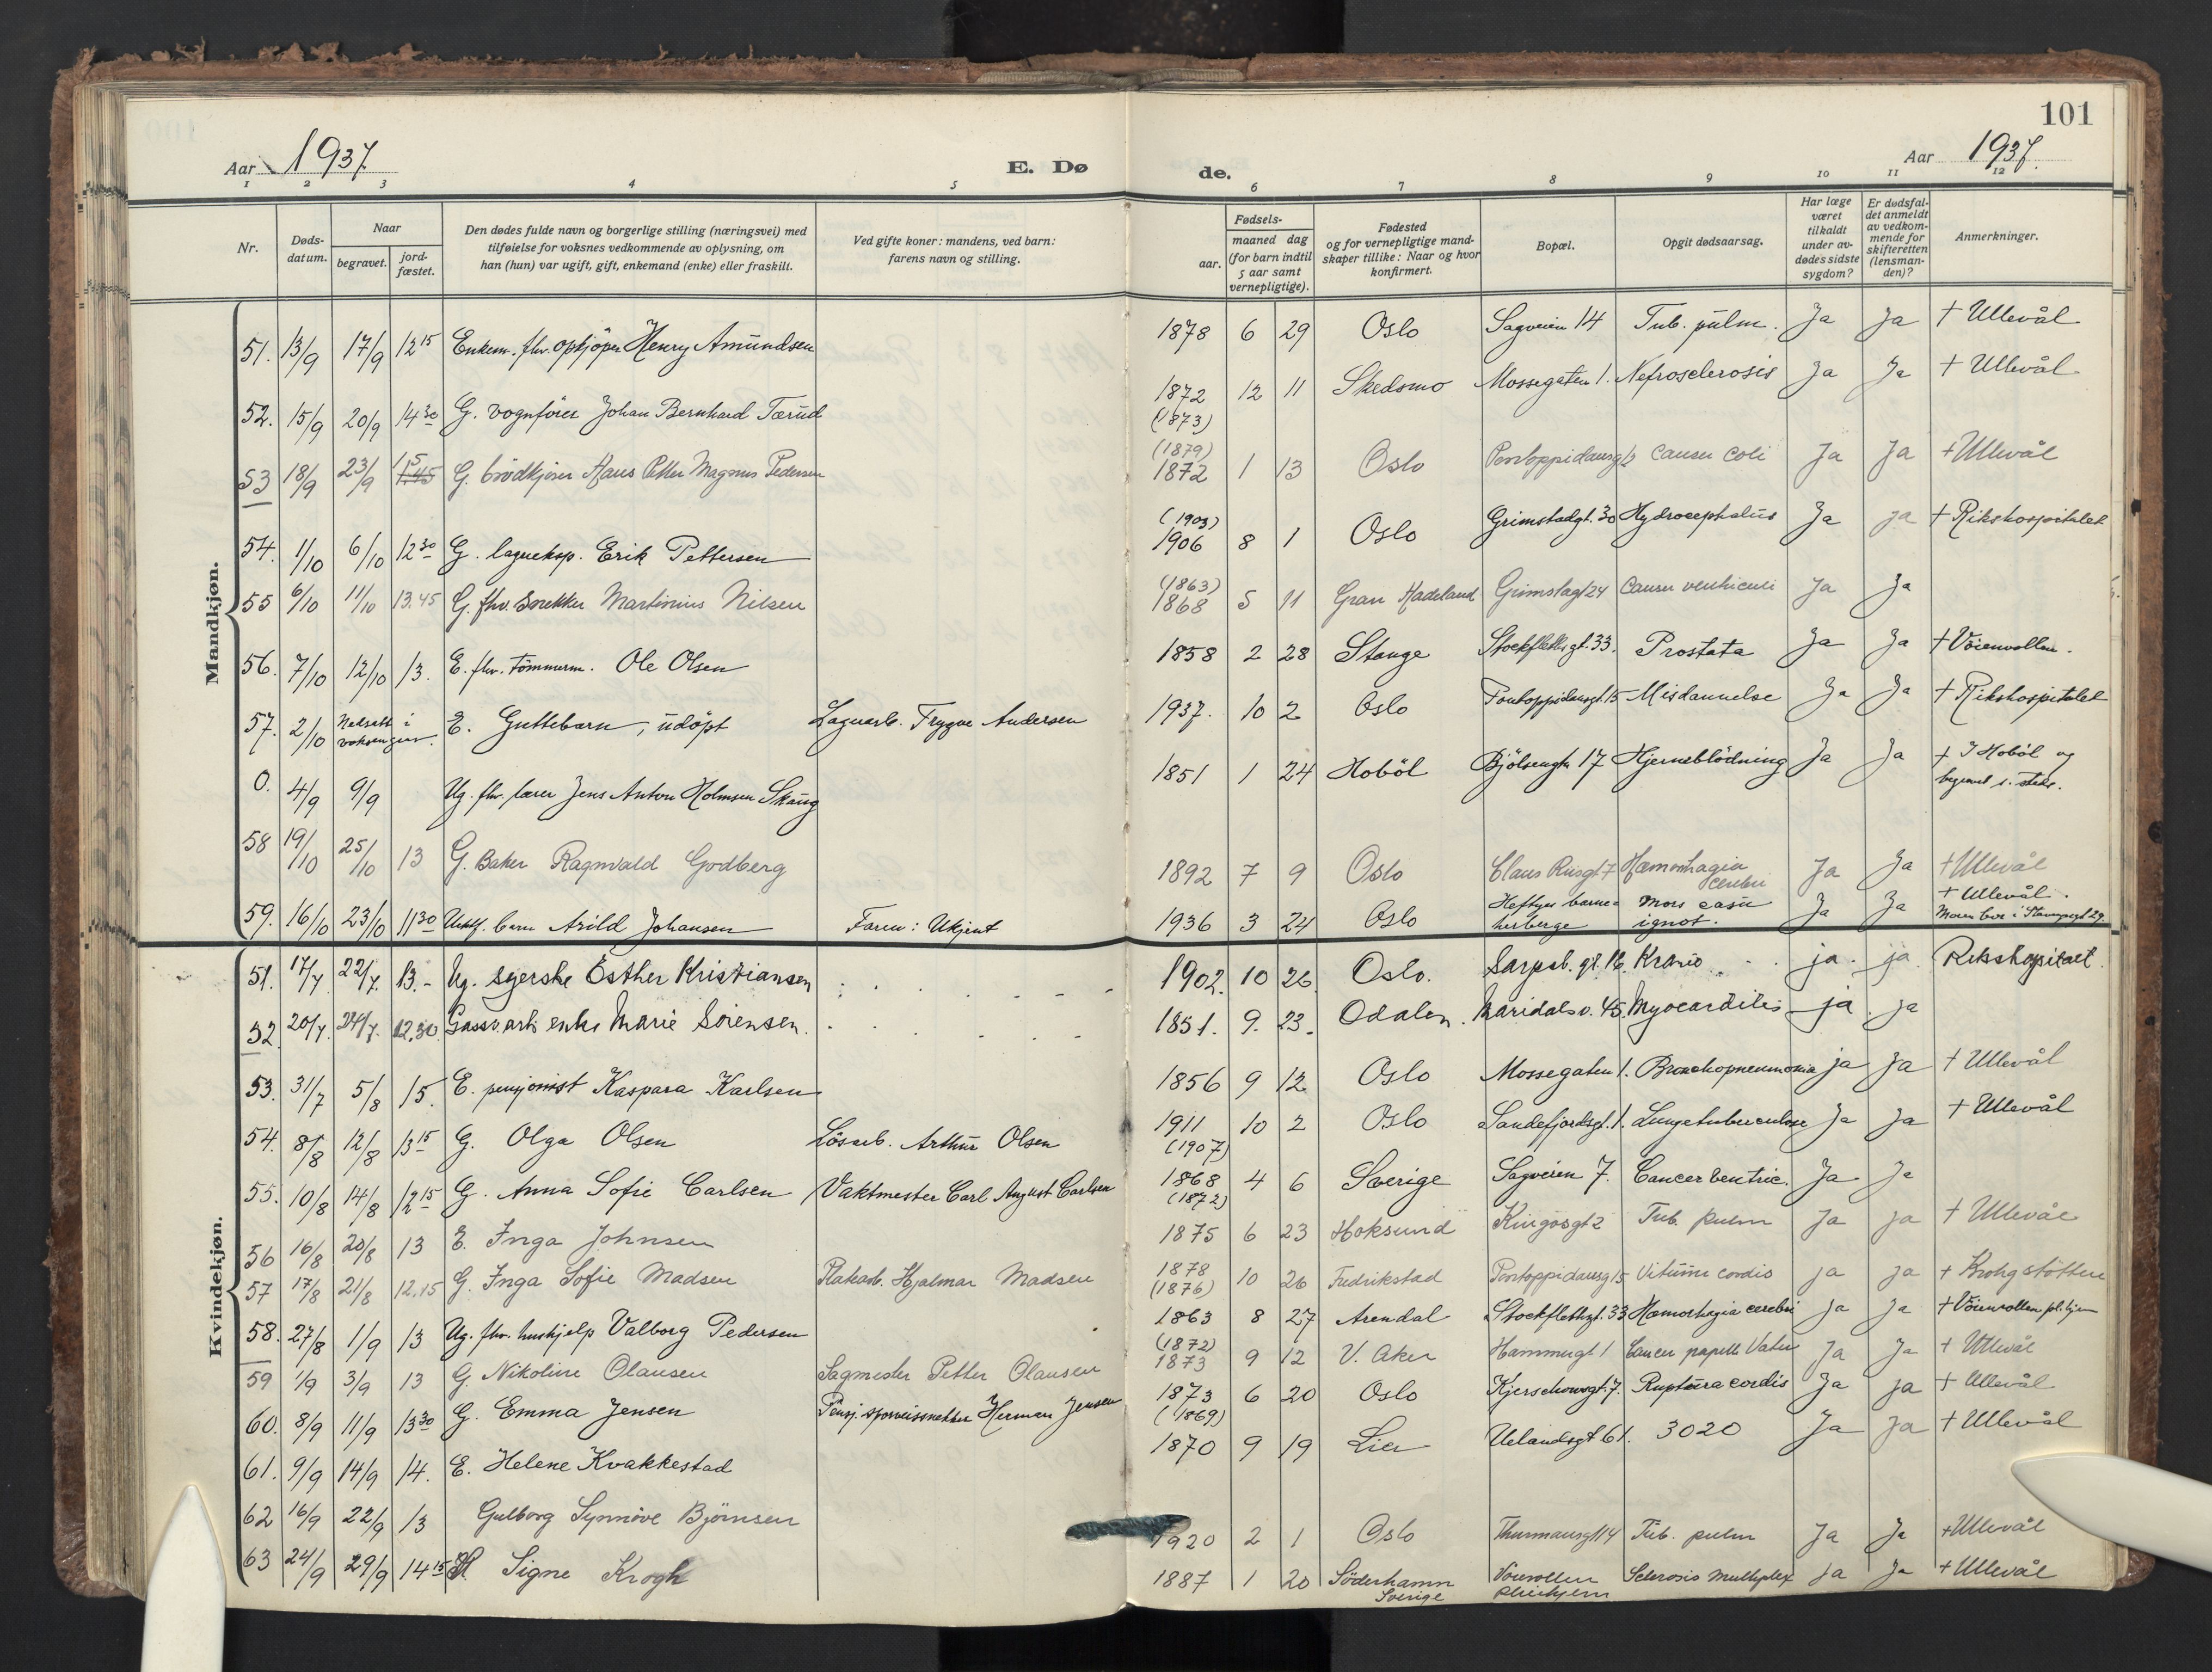 101
Aar 1937 E. Dø de. Aar 1937.
1 2 3 4 5 6 7 8 9 10 11 12
Nr. Døds-datum. Naar begravet. jord-fæstet. Den dødes fulde navn og borgerlige stilling (næringsvei) med tilføielse for voksnes vedkommende av oplysning, om han (hun) var ugift, gift, enkemand (enke) eller fraskilt. Ved gifte koner: mandens, ved barn: farens navn og stilling. Fødsels- aar. maaned dag (for barn indtil 5 aar samt vernepligtige). Fødested og for vernepligtige mandskaper tillike: Naar og hvor konfirmert. Bopæl. Opgit dødsaarsag. Har læge været tilkaldt under avdødes sidste sygdom? Er dødsfaldet anmeldt av vedkommende for skifteretten (lensmanden)? Anmerkninger.
Mandkjøn.
51. 13/9 17/9 12 15 Enkem. fhv. opkjöper Henry Amundsen 1878 6 29 Oslo Sagveien 14 Tub. pulm. Ja Ja + Ullevål
52. 15/9 20/9 14 30 G. vognförer Johan Bernhard Tærud 1872 (1873) 12 11 Skedsmo Mossegaten 1. Nefrosclerosis Ja Ja + Ullevål
53 18/9 23/9 G. brödkjörer Hans Petter Magnus Pedersen (1879) 1872 1 13 Oslo Cancer coli Ja Ja + Ullevål
54. 1/10 6/10 12 30 G. lagereksp. Erik Pettersen (1903) 1906 8 1 Oslo Grimstadgt. 30 Hydrocephalus Ja Ja + Rikshospitalet
55 6/10 11/10 13.45 G. fhv. Snekker Martinius Nilsen (1863) 1868 5 11 Gran Hadeland Grimstagt 24 Cancer ventriculi Ja Ja
56. 7/10 12/10 13. E. fhv. tömmerm. Ole Olsen 1858 2 28 Stange Stockflethsgt. 33. Prostata Ja Ja + Vöienvollen.
57. 2/10 Nedsatt i voksen grav. E. Guttebarn, udöpt Lagerarb. Trygve Andersen 1937. 10 2 Oslo Pontoppidansgt. 15 Misdannelse Ja Ja + Rikshospitalet
0. 4/9 9/9 Ug. fhv. lærer Jens Anton Holmsen Skaug 1851 1 24 Hoböl Bjölsengt. 17 Hjerneblödning Ja Ja + I Hoböl og begravet s. steds.
58 19/10 25/10 13 G. Baker Ragnvald Godberg 1892 7 9 Oslo Claus Riisgt 7 Hæmorrhagia cerebri Ja Ja + Ullevål
59. 16/10 23/10 11 30 barn Arild Johansen Faren: Ukjent 1936 3 24 Oslo Heftyes barneherberge Mors casu ignot. Ja Ja + Ullevål. Moren bor i
Kvindekjøn.
51. 17/7 22/7. 13.- Ug. syerske Esther Kristiansen 1902. 10 26 Oslo. Sarpsb. gt. 16. Kranio.. ja. ja. Rikshospitalet.
52. 20/7. 24/7. 12.30 Gassv.arb. enke Marie Sörensen. 1851. 9. 23. Odalen. Maridalsv. 45. Myocarditis ja ja
53. 31/7 5/8 15. E. pensjonist Kaspara Karlsen 1856 9 12 Oslo Mossegaten 1. Bronchopneumonia ja Ja + Ullevål
54. 8/8 12/8 13 15 G. Olga Olsen Lösarb. Arthur Olsen 1911 (1907) 10 2 Oslo Sandefjordsgt. 1. Lungetuberculose Ja Ja + Ullevål
55. 10/8 14/8 12 15 G. Anna Sofie Carlsen Vaktmester Carl August Carlsen 1868 (1872) 4 6 Sverige Sagveien 7. Cancer ventric. Ja Ja
56 16/8 20/8 13 E. Inga Johnsen 1875 6 23 Hoksund Kingosgt 2 Tub. pulm Ja ja + Ullevål
57 17/8 21/8 12.15 G. Inga Sofie Madsen Platearb. Hjalmar Madsen 1878 (1876) 10 26 Fredrikstad Pontoppidansg 15 Vitium cordis ja ja + Krohgstötten
58. 27/8 1/9 13 Ug. fhv. hushjelp Valborg Pedersen 1863 8 27 Arendal Stockflethsgt. 33 Hæmorhagia cerebri Ja Ja + Vöienvollen pl.hjem
59 1/9 3/9 13 G. Nikoline Olausen Sagmester Petter Olausen (1872) 1873 9 12 V. Aker Hammergt 1 Cancer papill. Vateri Ja Ja + Ullevål
60. 8/9 11/9 13 30 G. Emma Jensen Pensj. sporveissnekker Herman Jensen 1873 (1869) 6 20 Oslo Kjerschowsgt. 7. Ruptura cordis Ja ja + Ullevål
61. 9/9 14/9 14. E. Helene Kvakkestad 1870 9 19 Lier Uelandsgt 61. 3020 Ja Ja + Ullevål
62 16/9 22/9 13 Gulborg Synnöve Björnsen 1920 2 1 Oslo Thurmansgt 14 Tub. pulm Ja Ja + Ullevål
63 24/9 29/9 14 15 Signe Krogh 1887 1 20 Söderhamn Sverige Vöienvollen pleiehjem Sclerosis multiplex Ja Ja + Ullevål